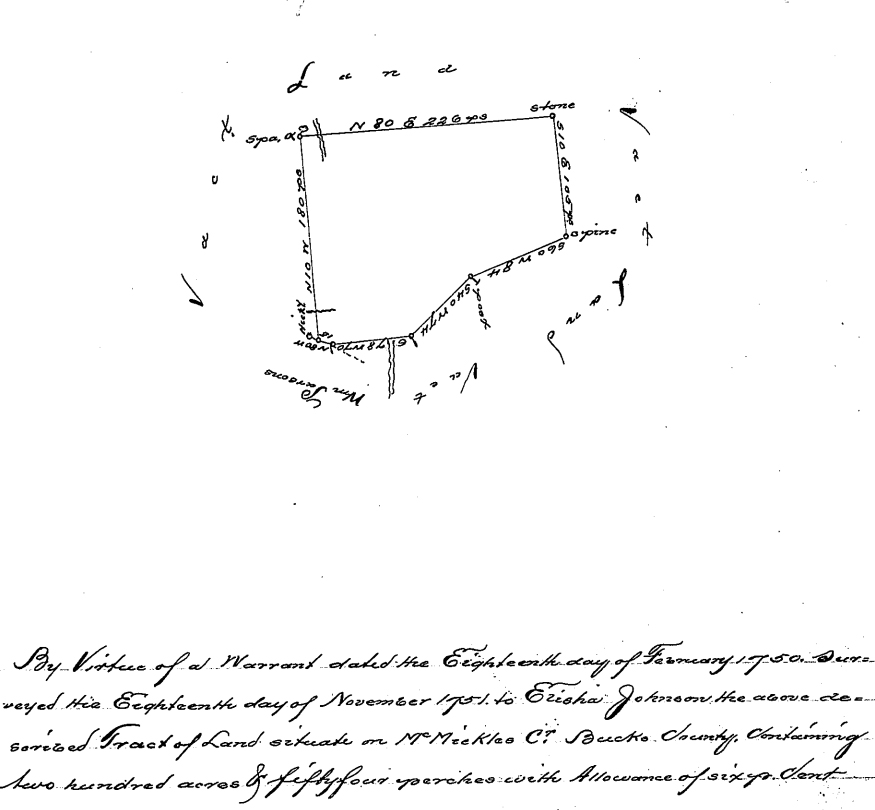 Land
stone
Spa, O
N 80 E 226 ps
S10 E 106 ps
Vacant
N10 W 180 ps
pine
S60 W 84
S40 W 74
Hicky
S 78 W 70
N 60 W
Land
Wm Parsons
Vact
By Virtue of a Warrant dated the Eighteenth day of February 1750. Sur=
veyed the Eighteenth day of November 1751. to Elisha Johnson the above de=
scribed Tract of Land situate on McMickles Cr. Bucks County. Containing
two hundred acres & fiftyfour perches with Allowance of six pr. Cent